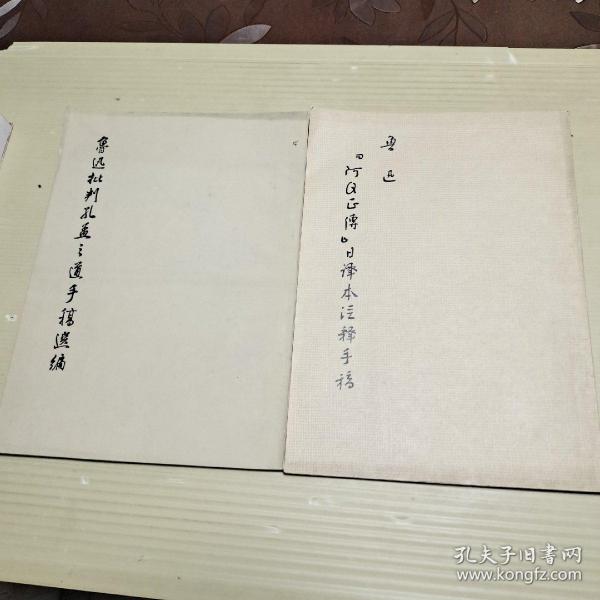 鲁迅批判孔孟之道手稿选编
鲁迅
『阿Q正傳』日译本注释手稿
孔夫子旧书网
www.kongfz.com